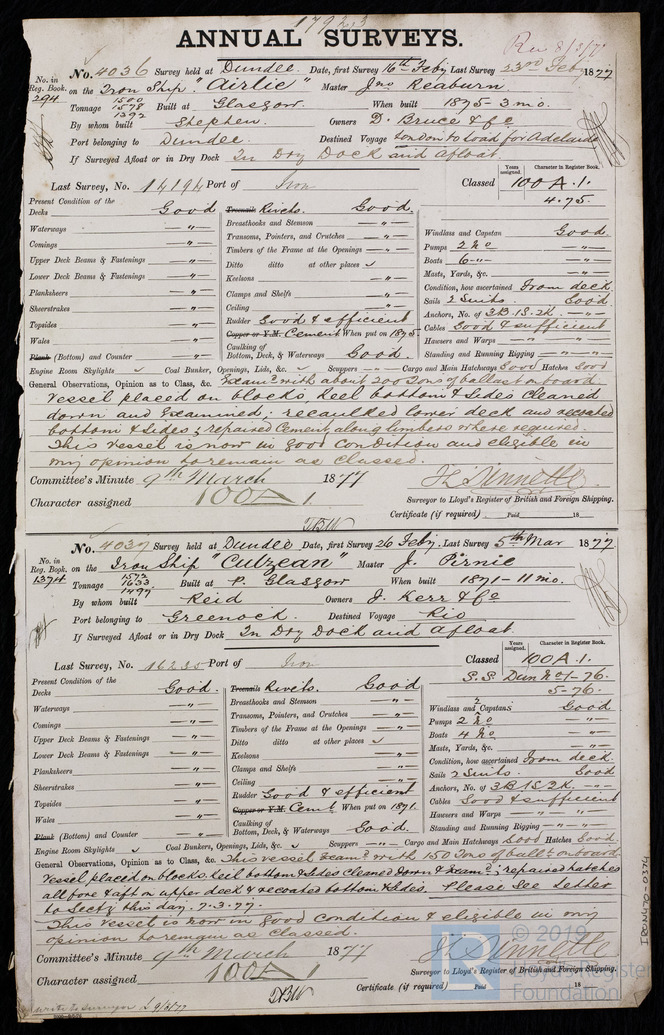 17923
ANNUAL SURVEYS.
Rec 8/3/77
No. in Reg. Book. 294
No. 4036 Survey held at Dundee Date, first Survey 16th Feby Last Survey 23rd Feby 1877
on the Iron Ship "Airlie" Master Jno Reaburn
Tonnage 1500 1578 1392 Built at Glasgow When built 1875-3mo.
By whom built Stephen Owners D. Bruce & Co
Port belonging to Dundee Destined Voyage London to load for Adelaide
If Surveyed Afloat or in Dry Dock In Dry Dock and afloat.
Last Survey, No. 14194 Port of Iron
Classed
Years assigned.
Character in Register Book.
100 A.1.
4.75.
Present Condition of the
Decks Good
Waterways — " —
Comings — " —
Upper Deck Beams & Fastenings — " —
Lower Deck Beams & Fastenings — " —
Planksheers — " —
Sheerstrakes — " —
Topsides — " —
Wales — " —
Plank (Bottom) and Counter — " —
Treenails Rivets. Good.
Breasthooks and Stemson — " —
Transoms, Pointers, and Crutches — " —
Timbers of the Frame at the Openings — " —
Ditto ditto at other places ✓
Keelsons — " —
Clamps and Shelfs — " —
Ceiling — " —
Rudder Good & efficient
Copper or Y.M. Cement When put on 1875.
Caulking of
Bottom, Deck, & Waterways Good.
Windlass and Capstan Good.
Pumps 2 No — " —
Boats 6 — " — — " —
Masts, Yards, &c. — " —
Condition, how ascertained From deck.
Sails 2 Suits. Good
Anchors, No. of 3B.1S.2K. — " —
Cables Good & sufficient
Hawsers and Warps — " — — " —
Standing and Running Rigging — " — — " —
Engine Room Skylights ✓ Coal Bunker, Openings, Lids, &c. ✓ Scuppers — " — Cargo and Main Hatchways Good Hatches Good
General Observations, Opinion as to Class, &c. Examd with about 200 Tons of ballast on board
Vessel placed on blocks, keel bottom & sides cleaned
down and examined; recaulked lower deck and recoated
bottom & sides; repaired Cement along limbers where required.
This vessel is now in good condition and eligible in
my opinion to remain as classed.
Committee's Minute 9th March 1877
Character assigned 100 A 1
Surveyor to Lloyd's Register of British and Foreign Shipping.
Certificate (if required) Paid 18
No. in Reg. Book. 1374
No. 4037 Survey held at Dundee Date, first Survey 26 Feby. Last Survey 5th Mar 1877
on the Iron Ship "Culzean" Master J. Pirnie
Tonnage 1572 1633 1497 Built at P. Glasgow When built 1871-11mo.
By whom built Reid Owners J. Kerr & Co
Port belonging to Greenock Destined Voyage Rio
If Surveyed Afloat or in Dry Dock In Dry Dock and afloat.
Last Survey, No. 16230 Port of Iron
Classed
Years assigned.
Character in Register Book.
100 A.1.
S.S. Dun No1-76.
5-76.
Present Condition of the
Decks Good.
Waterways — " —
Comings — " —
Upper Deck Beams & Fastenings — " —
Lower Deck Beams & Fastenings — " —
Planksheers — " —
Sheerstrakes — " —
Topsides — " —
Wales — " —
Plank (Bottom) and Counter — " —
Treenails Rivets. Good
Breasthooks and Stemson — " —
Transoms, Pointers, and Crutches — " —
Timbers of the Frame at the Openings — " —
Ditto ditto at other places ✓
Keelsons — " —
Clamps and Shelfs — " —
Ceiling — " —
Rudder Good & efficient
Copper or Y.M. Cemt. When put on 1871.
Caulking of
Bottom, Deck, & Waterways Good.
Windlass and 2 Capstans Good
Pumps 2 No — " —
Boats 4 No — " —
Masts, Yards, &c. — " —
Condition, how ascertained From deck.
Sails 2 Suits. Good
Anchors, No. of 3B 1S. 2K. — " —
Cables Good & sufficient
Hawsers and Warps — " — — " —
Standing and Running Rigging — " — — " —
Engine Room Skylights ✓ Coal Bunkers, Openings, Lids, &c. ✓ Scuppers — " — Cargo and Main Hatchways Good Hatches Good.
General Observations, Opinion as to Class, &c. This vessel Examd with 150 Tons of ballt onboard
Vessel placed on blocks, keel bottom & sides cleaned down & examd; repaired hatches
all fore & aft on upper deck & recoated bottom & sides. Please See Letter
to Secty this day. 7.3.77.
This vessel is now in good condition & eligible in my
opinion to remain as classed.
Committee's Minute 9th March 1877
Character assigned 100 A 1
Surveyor to Lloyd's Register of British and Foreign Shipping.
Certificate (if required) Paid 18
write to surveyor L 9/3/77
IRON470-0374
© 2019
Lloyd's Register
Foundation